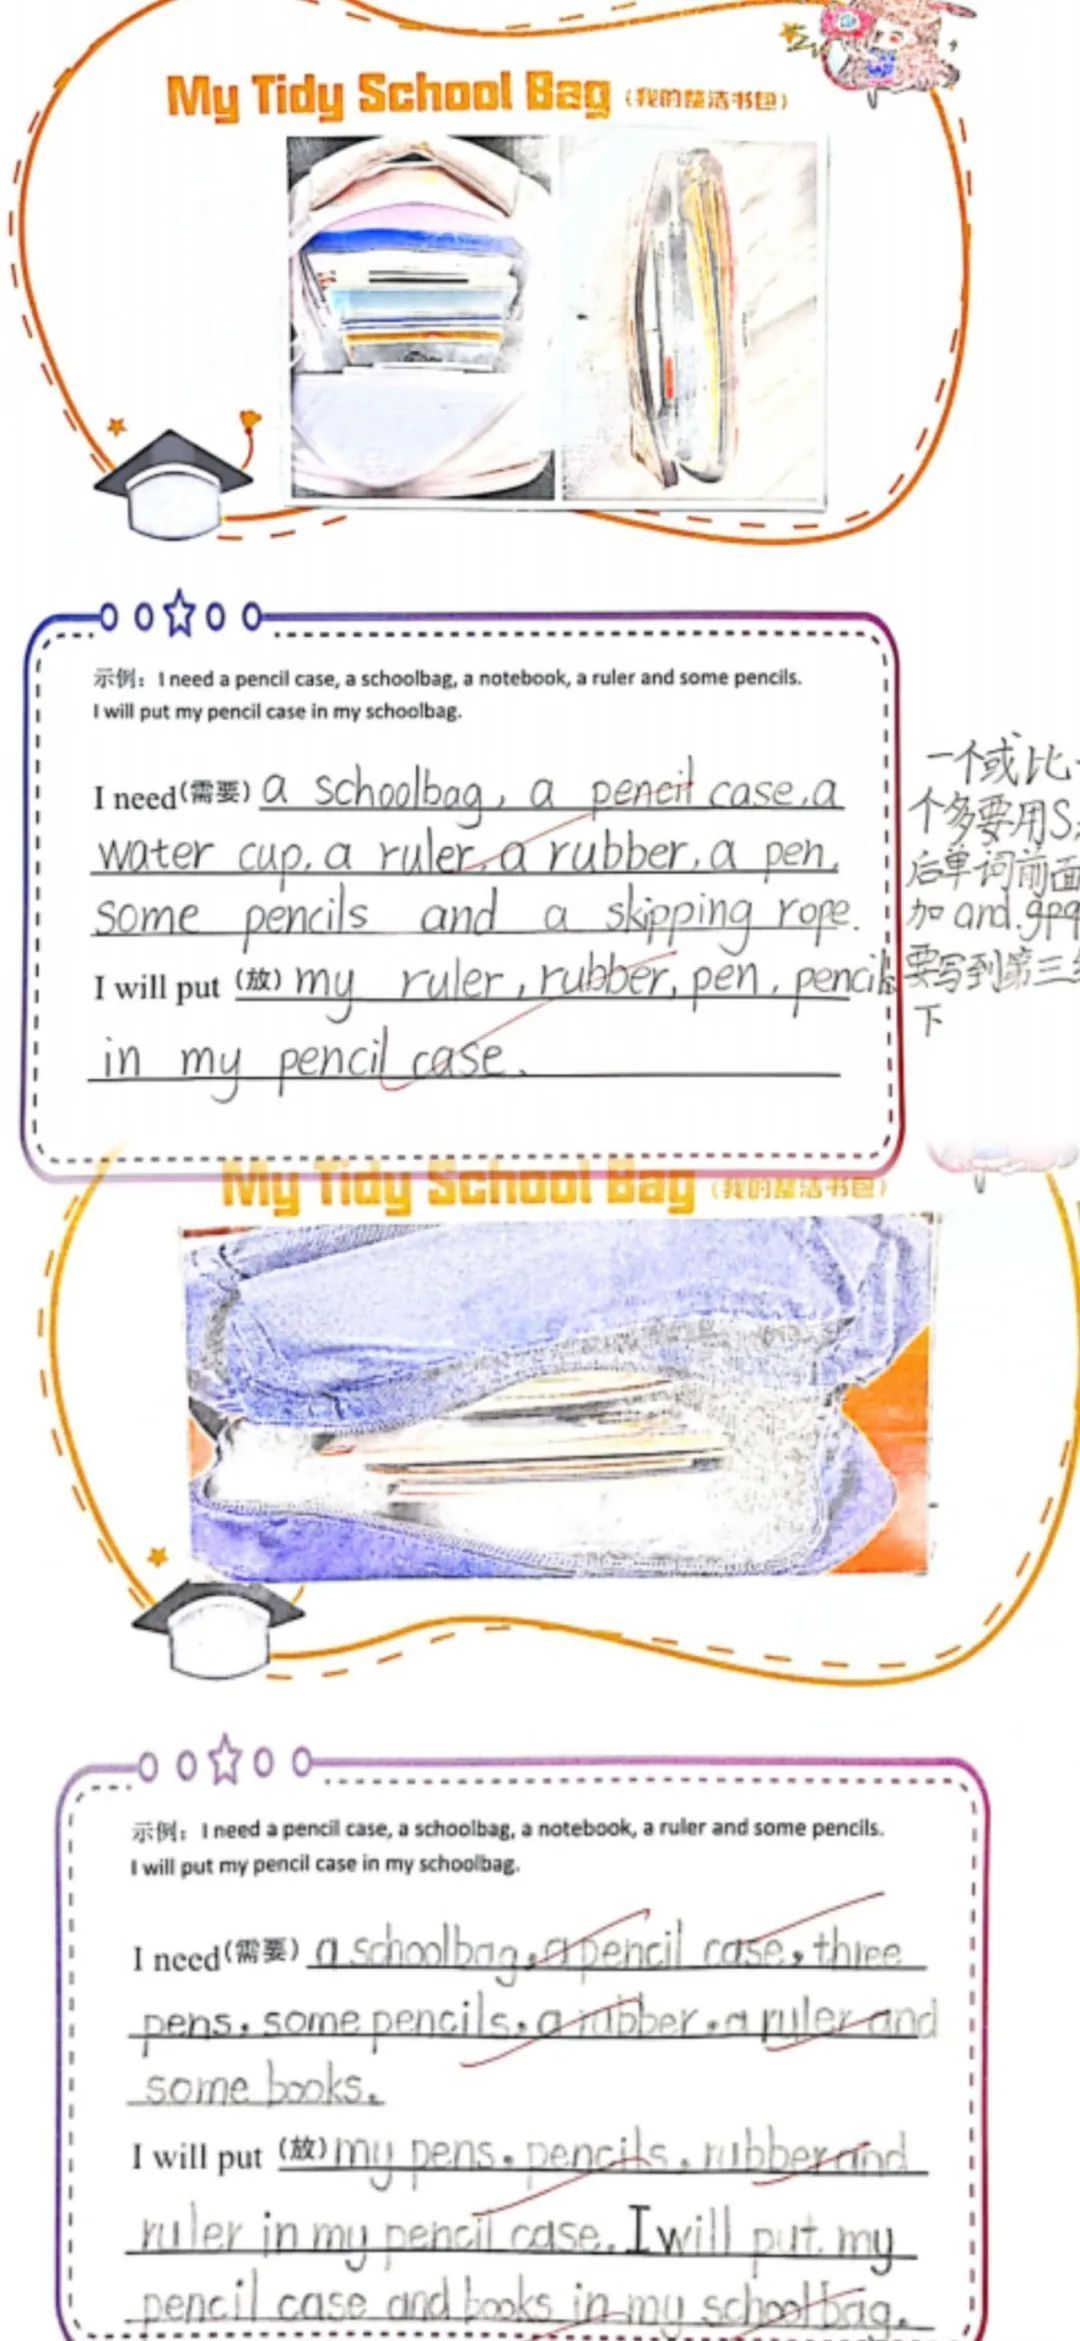 My Tidy School Bag (我的整洁书包)
示例：I need a pencil case, a schoolbag, a notebook, a ruler and some pencils.
I will put my pencil case in my schoolbag.
I need(需要) a schoolbag, a pencil case, a
water cup, a ruler, a rubber, a pen,
some pencils and a skipping rope.
I will put (放) my ruler, rubber, pen, pencils
in my pencil case.
一个或比一
个多要用S.
后单词前面
加 and.gpq
要写到第三线
下
My Tidy School Bag (我的整洁书包)
示例：I need a pencil case, a schoolbag, a notebook, a ruler and some pencils.
I will put my pencil case in my schoolbag.
I need(需要) a schoolbag, a pencil case, three
pens, some pencils, a rubber, a ruler and
some books.
I will put (放) my pens, pencils, rubber and
ruler in my pencil case. I will put my
pencil case and books in my schoolbag.